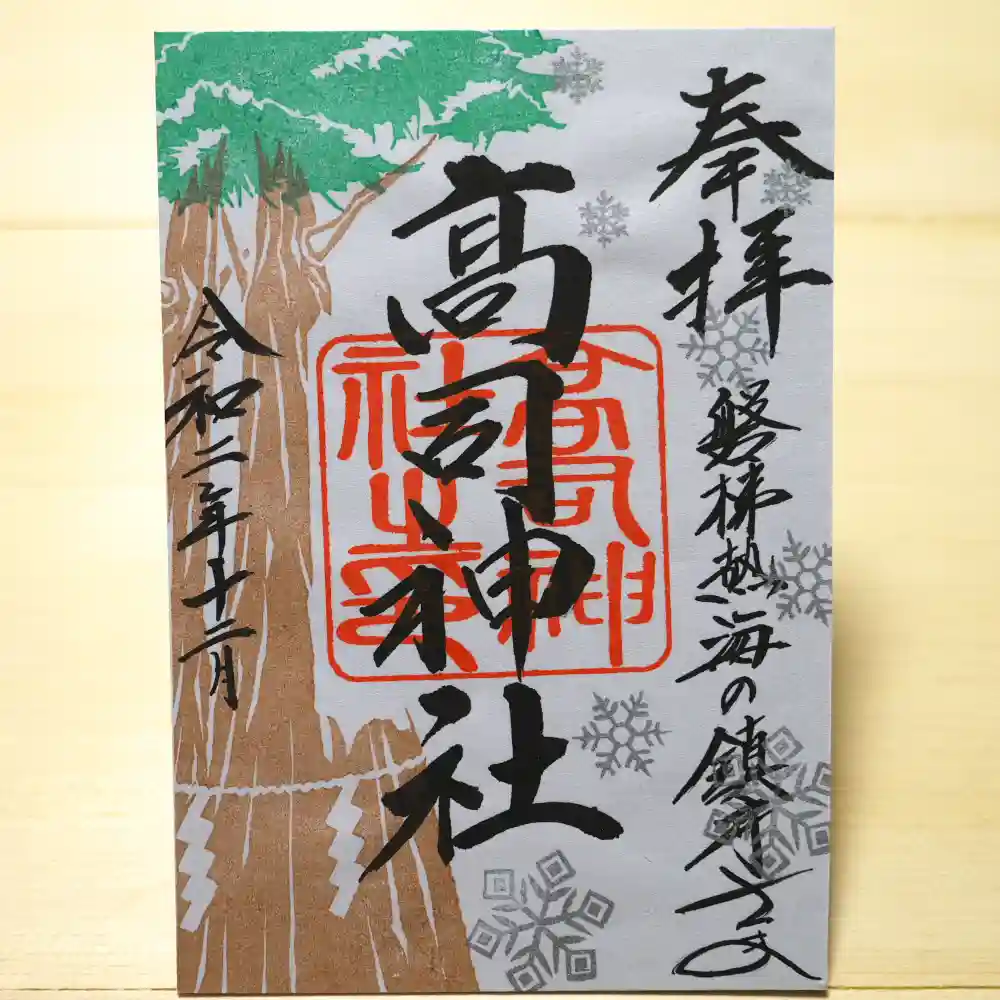 奉拝
磐梯熱海の鎮守さま
高司神社
高司神社之印
令和二年十二月